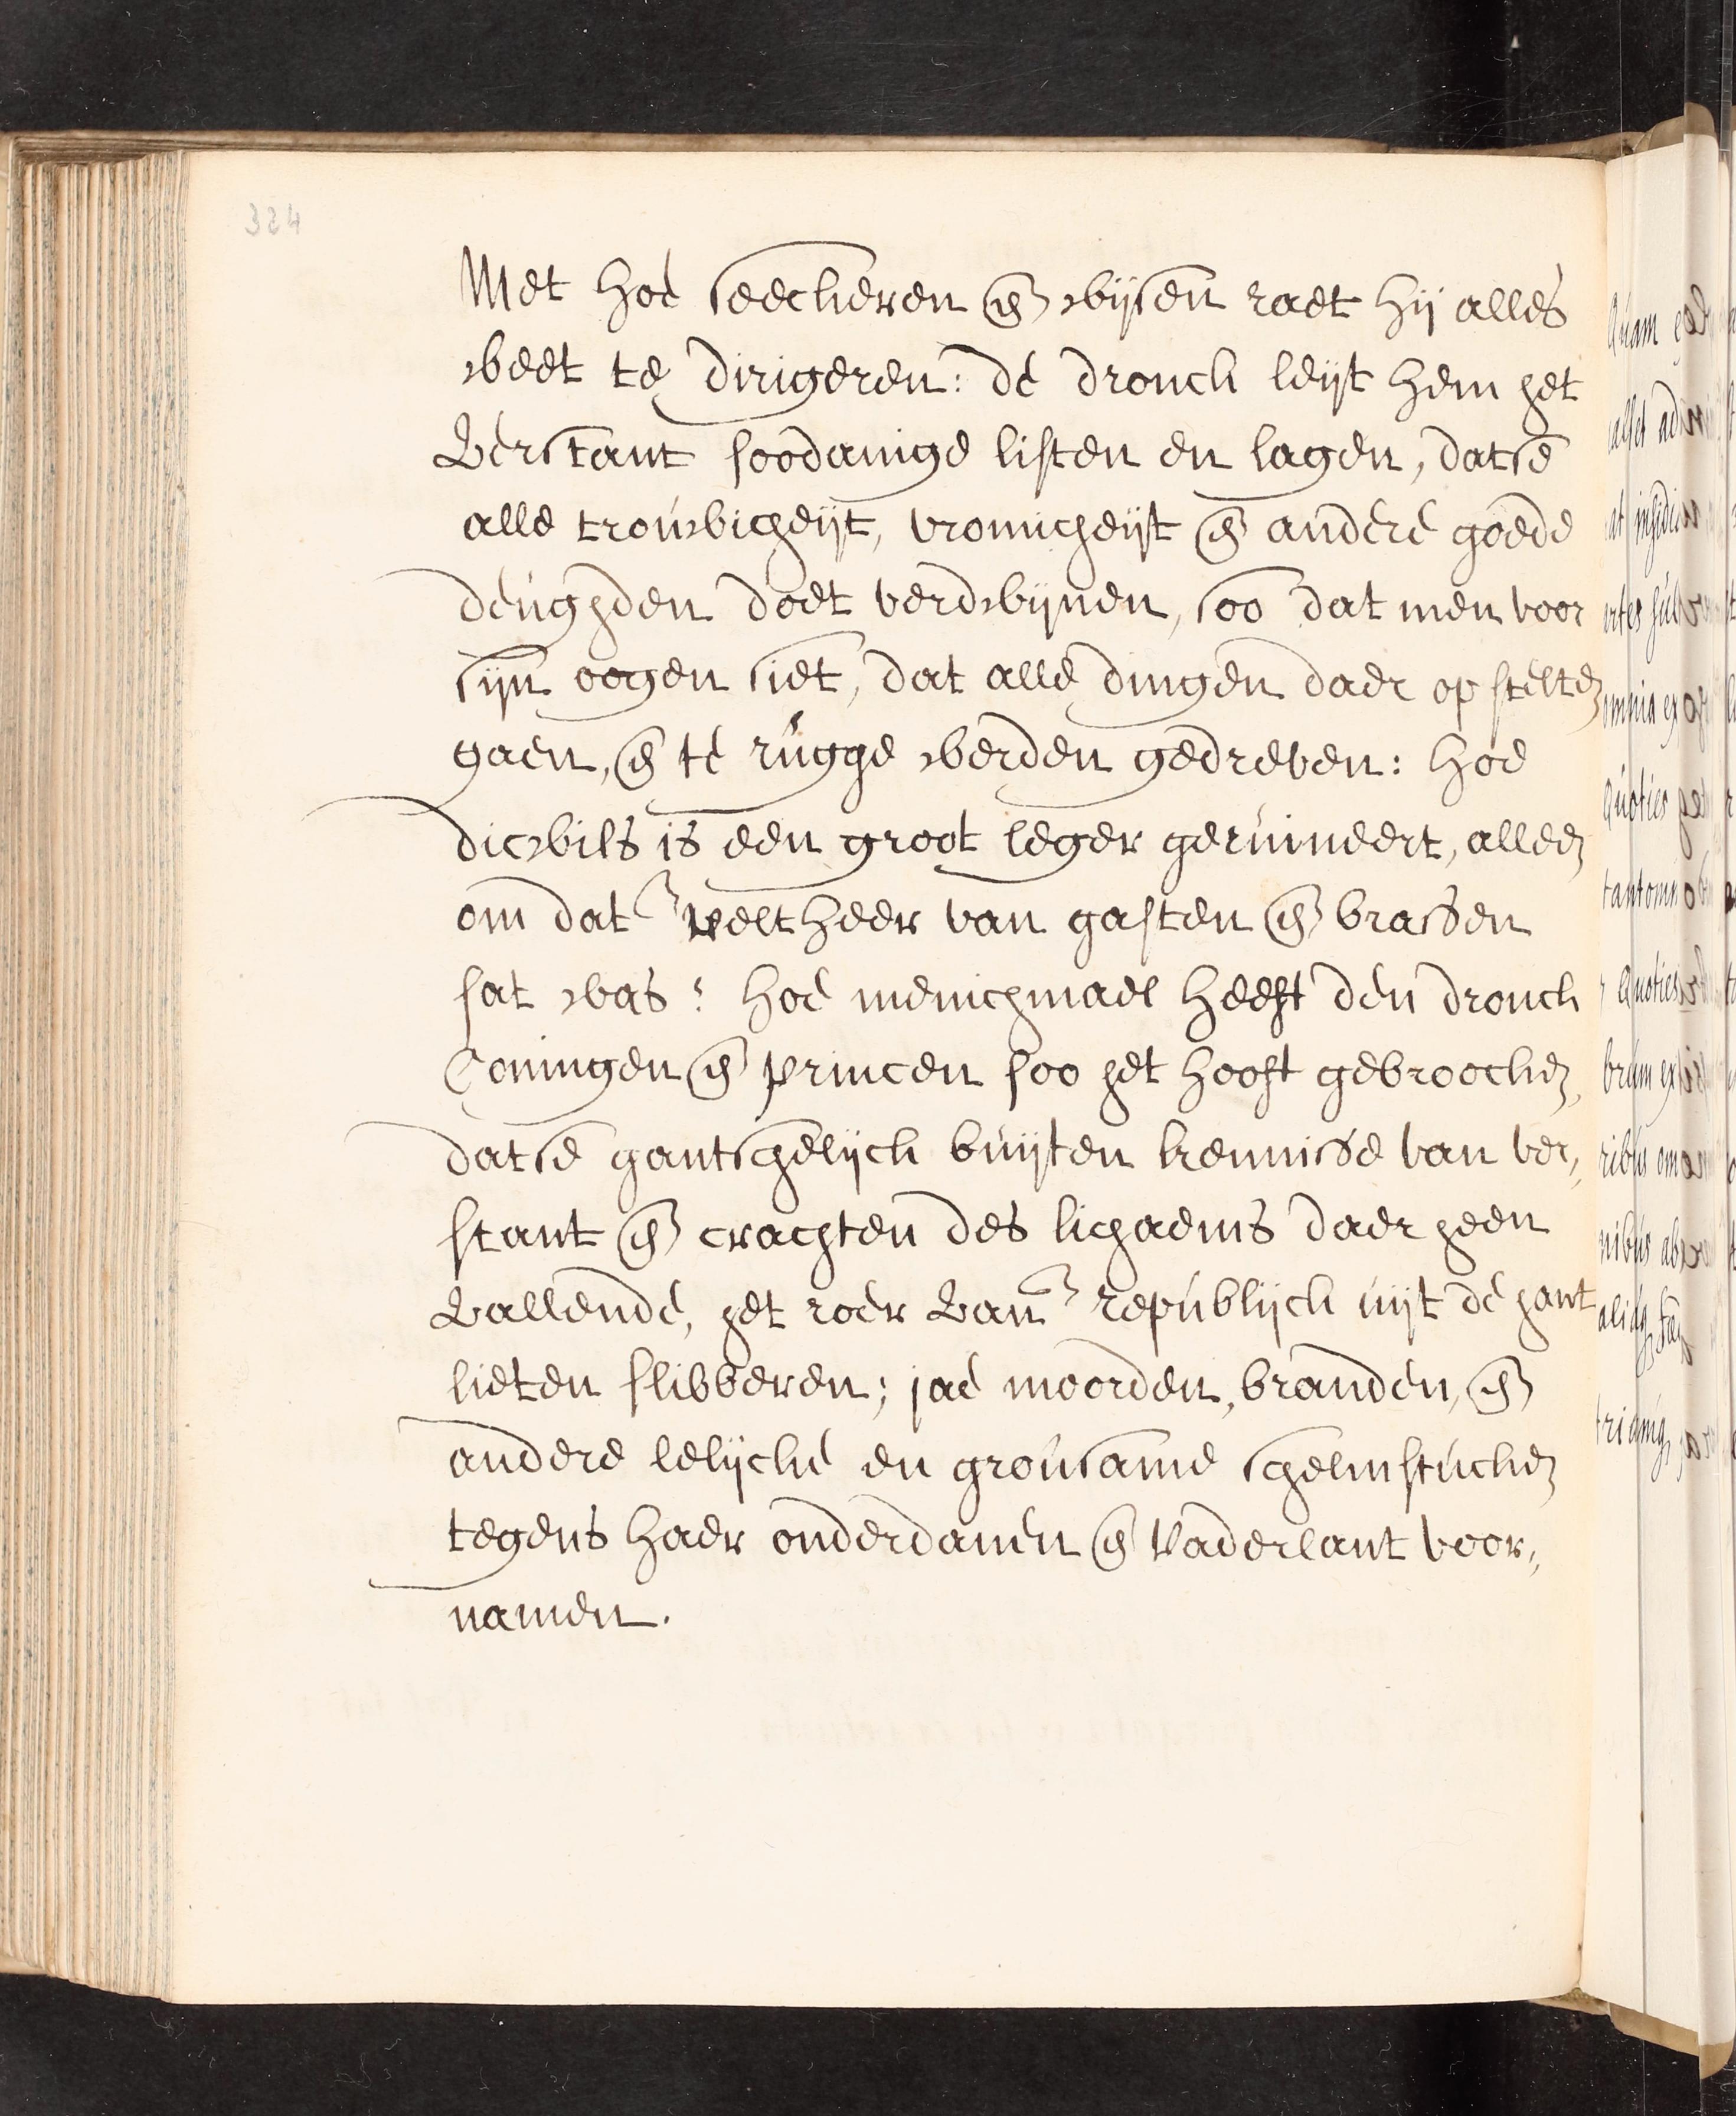 324
Met hoe seeckeren en wijsen raet hij alles
weet te dirigeren: de dronck leijt hem het
Verstant soodanige listen en lagen, datse
alle trouwicheijt, vromicheijt en andere goede
deughden doet verdwijnen, soo dat men voor
sijn oogen siet, dat alle dingen daer op stelten
gaen, en te rugge werden gedreven: hoe
dicwils is een groot leger geruineert, alleen
om dat veltheer van gasten en brassen
sat was? hoe menichmael heeft den dronck
Coningen en princen soo het hooft gebroocken,
datse gantschelijck buijten kennisse van ver,,
stant en crachten des lichaems daer heen
Vallende, het roer Van republijck uijt de hant
lieten slibberen; jae moorden, branden, en
andere lelijcke en grousame schelmstucken
tegens haer onderdanen en Vaderlant voor,,
namen.